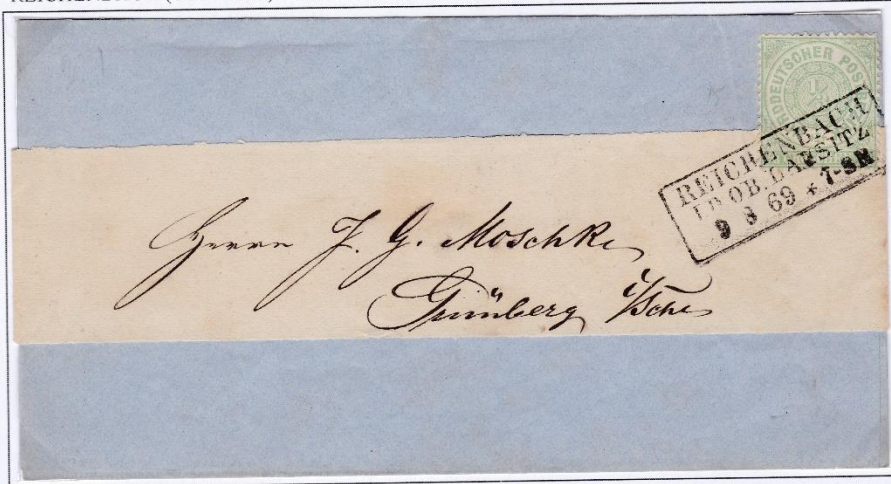 NORDDEUTSCHER POST
REICHENBACH
I.D. OB. LAUSITZ
9 8 69 * 7-8N
Herrn J. G. Moschke
Grünberg i/Schl